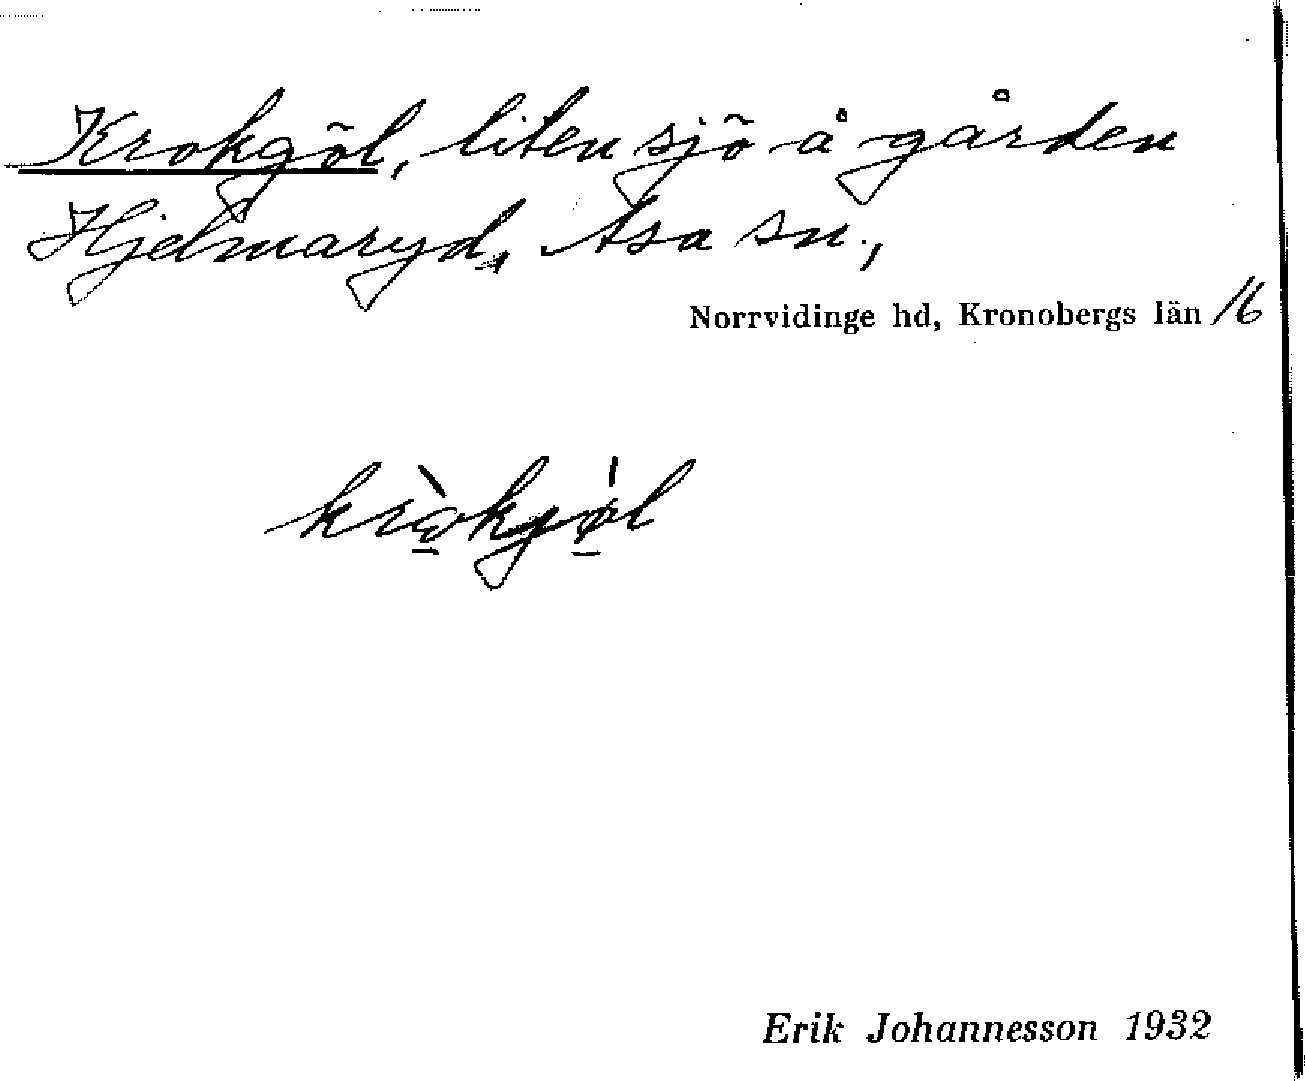 Krokgöl, liten sjö å gården
Hjelmaryd, Asa sn.,
Norrvidinge hd, Kronobergs län 16
krὼkgøl
Erik Johannesson 1932